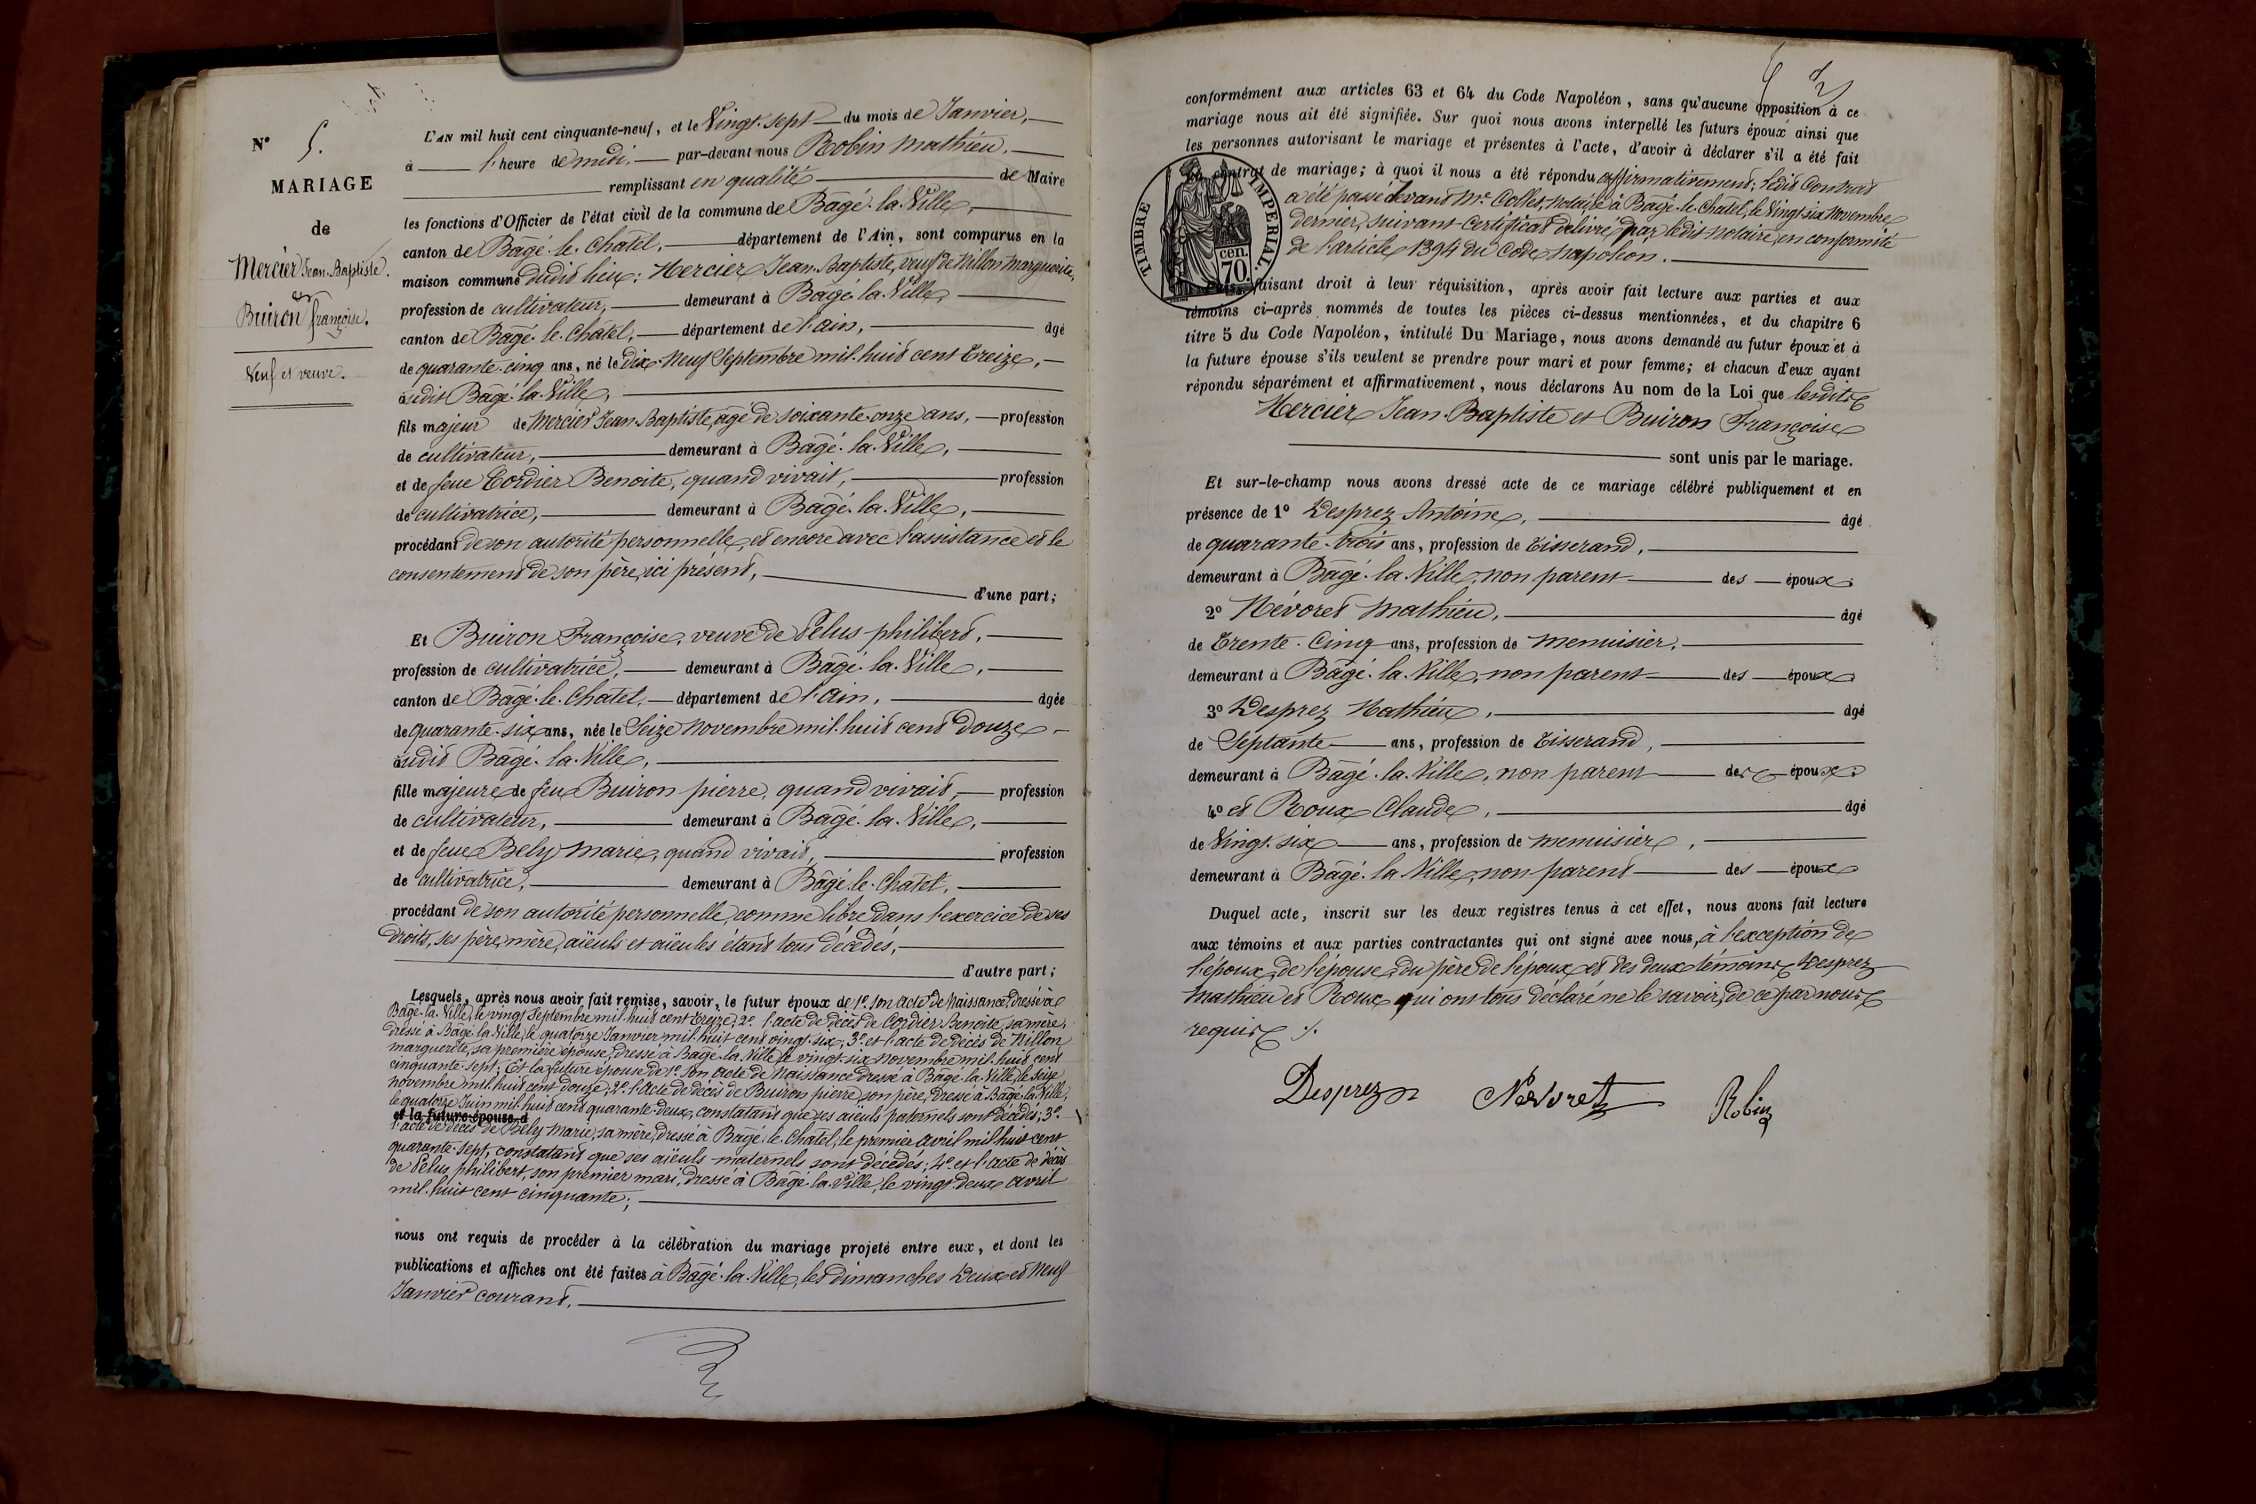 N° 5.
MARIAGE
de
Mercier Jean-Baptiste.
et
Buiron françoise.
Veuf et veuve.
L'AN mil huit cent cinquante-neuf, et le Vingt-sept du mois de Janvier,
à l'heure de midi, par-devant nous Robin Mathieu,
remplissant en qualité de Maire
les fonctions d'Officier de l'état civil de la commune de Bâgé-la-Ville,
canton de Bâgé-le-Chatel, département de l'Ain, sont comparus en la
maison commune dudit lieu: Mercier Jean-Baptiste, veuf de Millon Marguerite,
profession de cultivateur, demeurant à Bâgé-la-Ville,
canton de Bâgé-le-Chatel, département de l'ain, âgé
de quarante-cinq ans, né le Dix-Neuf Septembre mil-huit cent treize,
àudit Bâgé-la-Ville,
fils majeur de Mercier Jean-Baptiste, âgé de soixante-onze ans, profession
de cultivateur, demeurant à Bâgé-la-Ville,
et de feue Cordier Benoite, quand vivait, profession
de cultivatrice, demeurant à Bâgé-la-Ville,
procédant de son autorité personnelle, et encore avec l'assistance et le
consentement de son père, ici présent,
d'une part;
Et Buiron Françoise, veuve de Pelus philibert,
profession de cultivatrice, demeurant à Bâgé-la-Ville,
canton de Bâgé-le-Chatel, département de l'ain, âgée
de quarante-six ans, née le Seize Novembre mil-huit cent Douze
àudit Bâgé-la-Ville,
fille majeure de feu Buiron pierre, quand vivait, profession
de cultivateur, demeurant à Bâgé-la-Ville,
et de feue Bely Marie, quand vivait, profession
de cultivatrice, demeurant à Bâgé-le-Chatel,
procédant de son autorité personnelle, comme libre dans l'exercice de ses
droits, ses père, mère, aïeuls et aïeules étant tous décédés,
d'autre part;
Lesquels, après nous avoir fait remise, savoir, le futur époux de 1° son acte de Naissance, dressé à
Bâgé-la-Ville, le vingt Septembre mil-huit cent treize, 2° l'acte de décès de Cordier Benoite, sa mère,
dressé à Bâgé-la-Ville, le quatorze Janvier mil-huit cent vingt-six, 3° et l'acte de décès de Millon
marguerite, sa première épouse, dressé à Bâgé-la-Ville le vingt-six Novembre mil-huit cent
cinquante-sept; Et la future épouse de 1° son acte de Naissance dressé à Bâgé-la-Ville, le seize
novembre mil-huit cent douze, 2° l'acte de décès de Buiron pierre son père, dressé à Bâgé-la-Ville,
le quatorze Juin mil-huit cent quarante-deux, constatant que ses aïeuls paternels sont décédés; 3°
et la future épouse d
l'acte de décès de Bely Marie, sa mère, dressé à Bâgé-le-Chatel, le premier avril mil huit cent
quarante-sept, constatant que ses aïeuls maternels sont décédés; 4° et l'acte de décès
de Pelus philibert, son premier mari, dressé à Bâgé-la-Ville, le vingt-deux avril
mil-huit cent cinquante;
nous ont requis de procéder à la célébration du mariage projeté entre eux, et dont les
publications et affiches ont été faites à Bâgé-la-Ville, les dimanches Deux et Neuf
Janvier courant.
conformément aux articles 63 et 64 du Code Napoléon, sans qu'aucune opposition à ce
mariage nous ait été signifiée. Sur quoi nous avons interpellé les futurs époux ainsi que
les personnes autorisant le mariage et présentes à l'acte, d'avoir à déclarer s'il a été fait
contrat de mariage; à quoi il nous a été répondu affirmativement; ledit Contrat
a été passé devant Mr. Collet, notaire à Bâgé-le-Chatel, le Vingt-six Novembre
dernier, suivant Certificat délivré par ledit notaire, en conformité
de l'article 1394 du Code Napoléon.
TIMBRE IMPERIAL.
70 cen.
faisant droit à leur réquisition, après avoir fait lecture aux parties et aux
témoins ci-après nommés de toutes les pièces ci-dessus mentionnées, et du chapitre 6
titre 5 du Code Napoléon, intitulé Du Mariage, nous avons demandé au futur époux et à
la future épouse s'ils veulent se prendre pour mari et pour femme; et chacun d'eux ayant
répondu séparément et affirmativement, nous déclarons Au nom de la Loi que lesdits
Mercier Jean-Baptiste et Buiron Françoise
sont unis par le mariage.
Et sur-le-champ nous avons dressé acte de ce mariage célébré publiquement et en
présence de 1° Desprez Antoine, âgé
de quarante-trois ans, profession de tisserand,
demeurant à Bâgé-la-Ville, non parent des époux;
2° Névoret Mathieu, âgé
de trente-Cinq ans, profession de menuisier,
demeurant à Bâgé-la-Ville, non parent des époux;
3° Desprez Mathieu, âgé
de Septante ans, profession de tisserand,
demeurant à Bâgé-la-Ville, non parent des époux;
4° et Roux Claude, âgé
de Vingt-six ans, profession de menuisier,
demeurant à Bâgé-la-Ville, non parent des époux
Duquel acte, inscrit sur les deux registres tenus à cet effet, nous avons fait lecture
aux témoins et aux parties contractantes qui ont signé avec nous, à l'exception de
l'époux, de l'épouse, du père de l'époux et des deux témoins Desprez
Mathieu et Roux qui ont tous déclaré ne le savoir, de ce par nous
requis ./.
Desprez Nevoret Robin